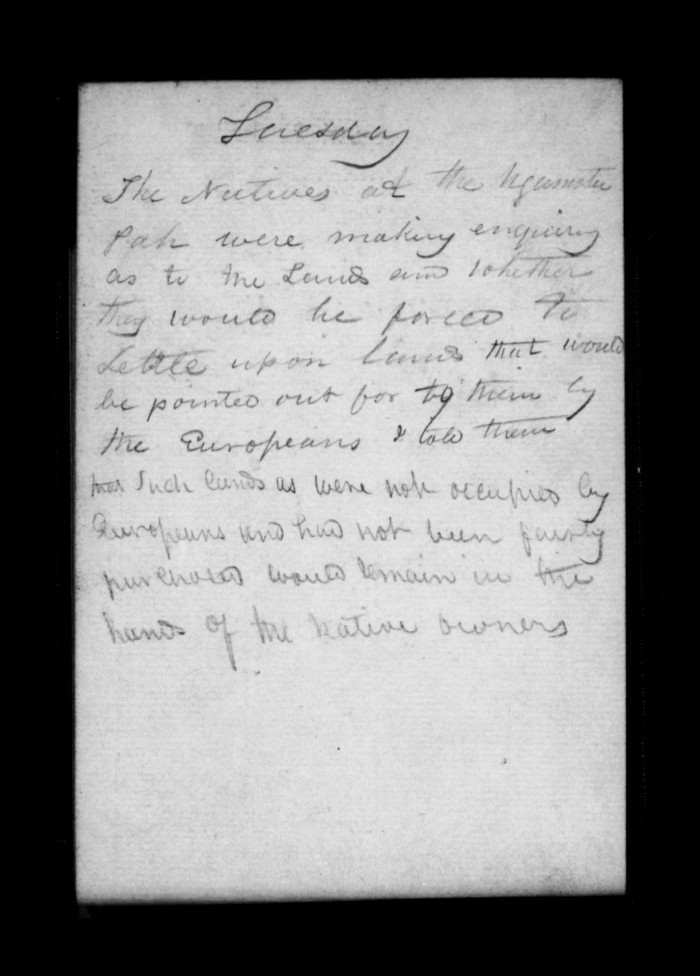 Tuesday
The Natives at the Ngamotu
Pah were making enquiry
as to the Lands and whether
they would be forced to
Settle upon lands that would
be pointed out for to them by
the Europeans I told them
that Such lands as were not occupied by
Europeans and had not been fairly
purchased would remain in the
hands of the Native owners